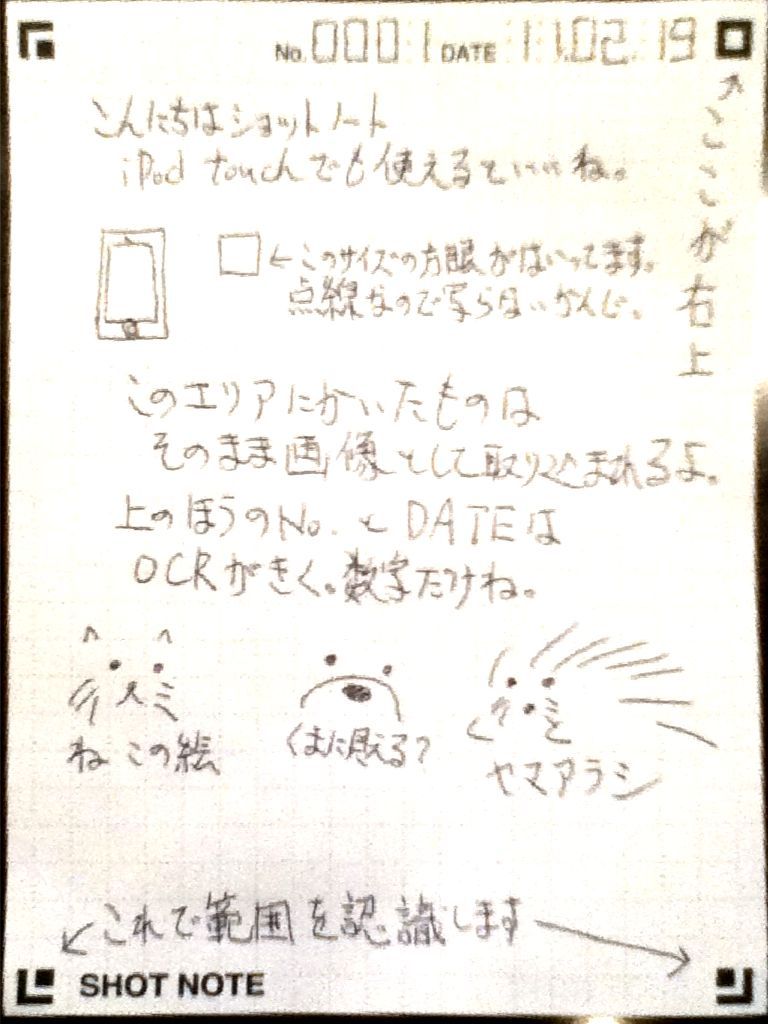 No. 0001 DATE 11.02.19
こんにちはショットノート
iPod touchでも使えるといいね。
ここが右上
←このサイズの方眼がはいってます。
点線なので写らないかんじ。
このエリアにかいたものは
そのまま画像として取り込まれるよ。
上のほうのNo.とDATEは
OCRがきく。数字だけね。
ねこの絵
くまに見える?
ヤマアラシ
これで範囲を認識します
SHOT NOTE